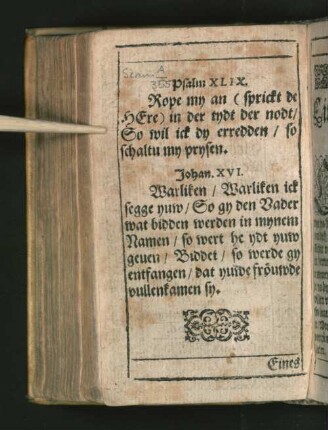 Psalm XLIX.
Rope my an ( sprickt de
HEre) in der tydt der nodt/
So wil ick dy erredden / so
schaltu my prysen.
Johan. XVI.
Warliken / Warliken ick
segge yuw / So gy den Vader
wat bidden werden in mynem
Namen / so wert he ydt yuw
geuen / Biddet / so werde gy
entfangen / dat yuwe fröuwde
vullenkamen sy.
Eines